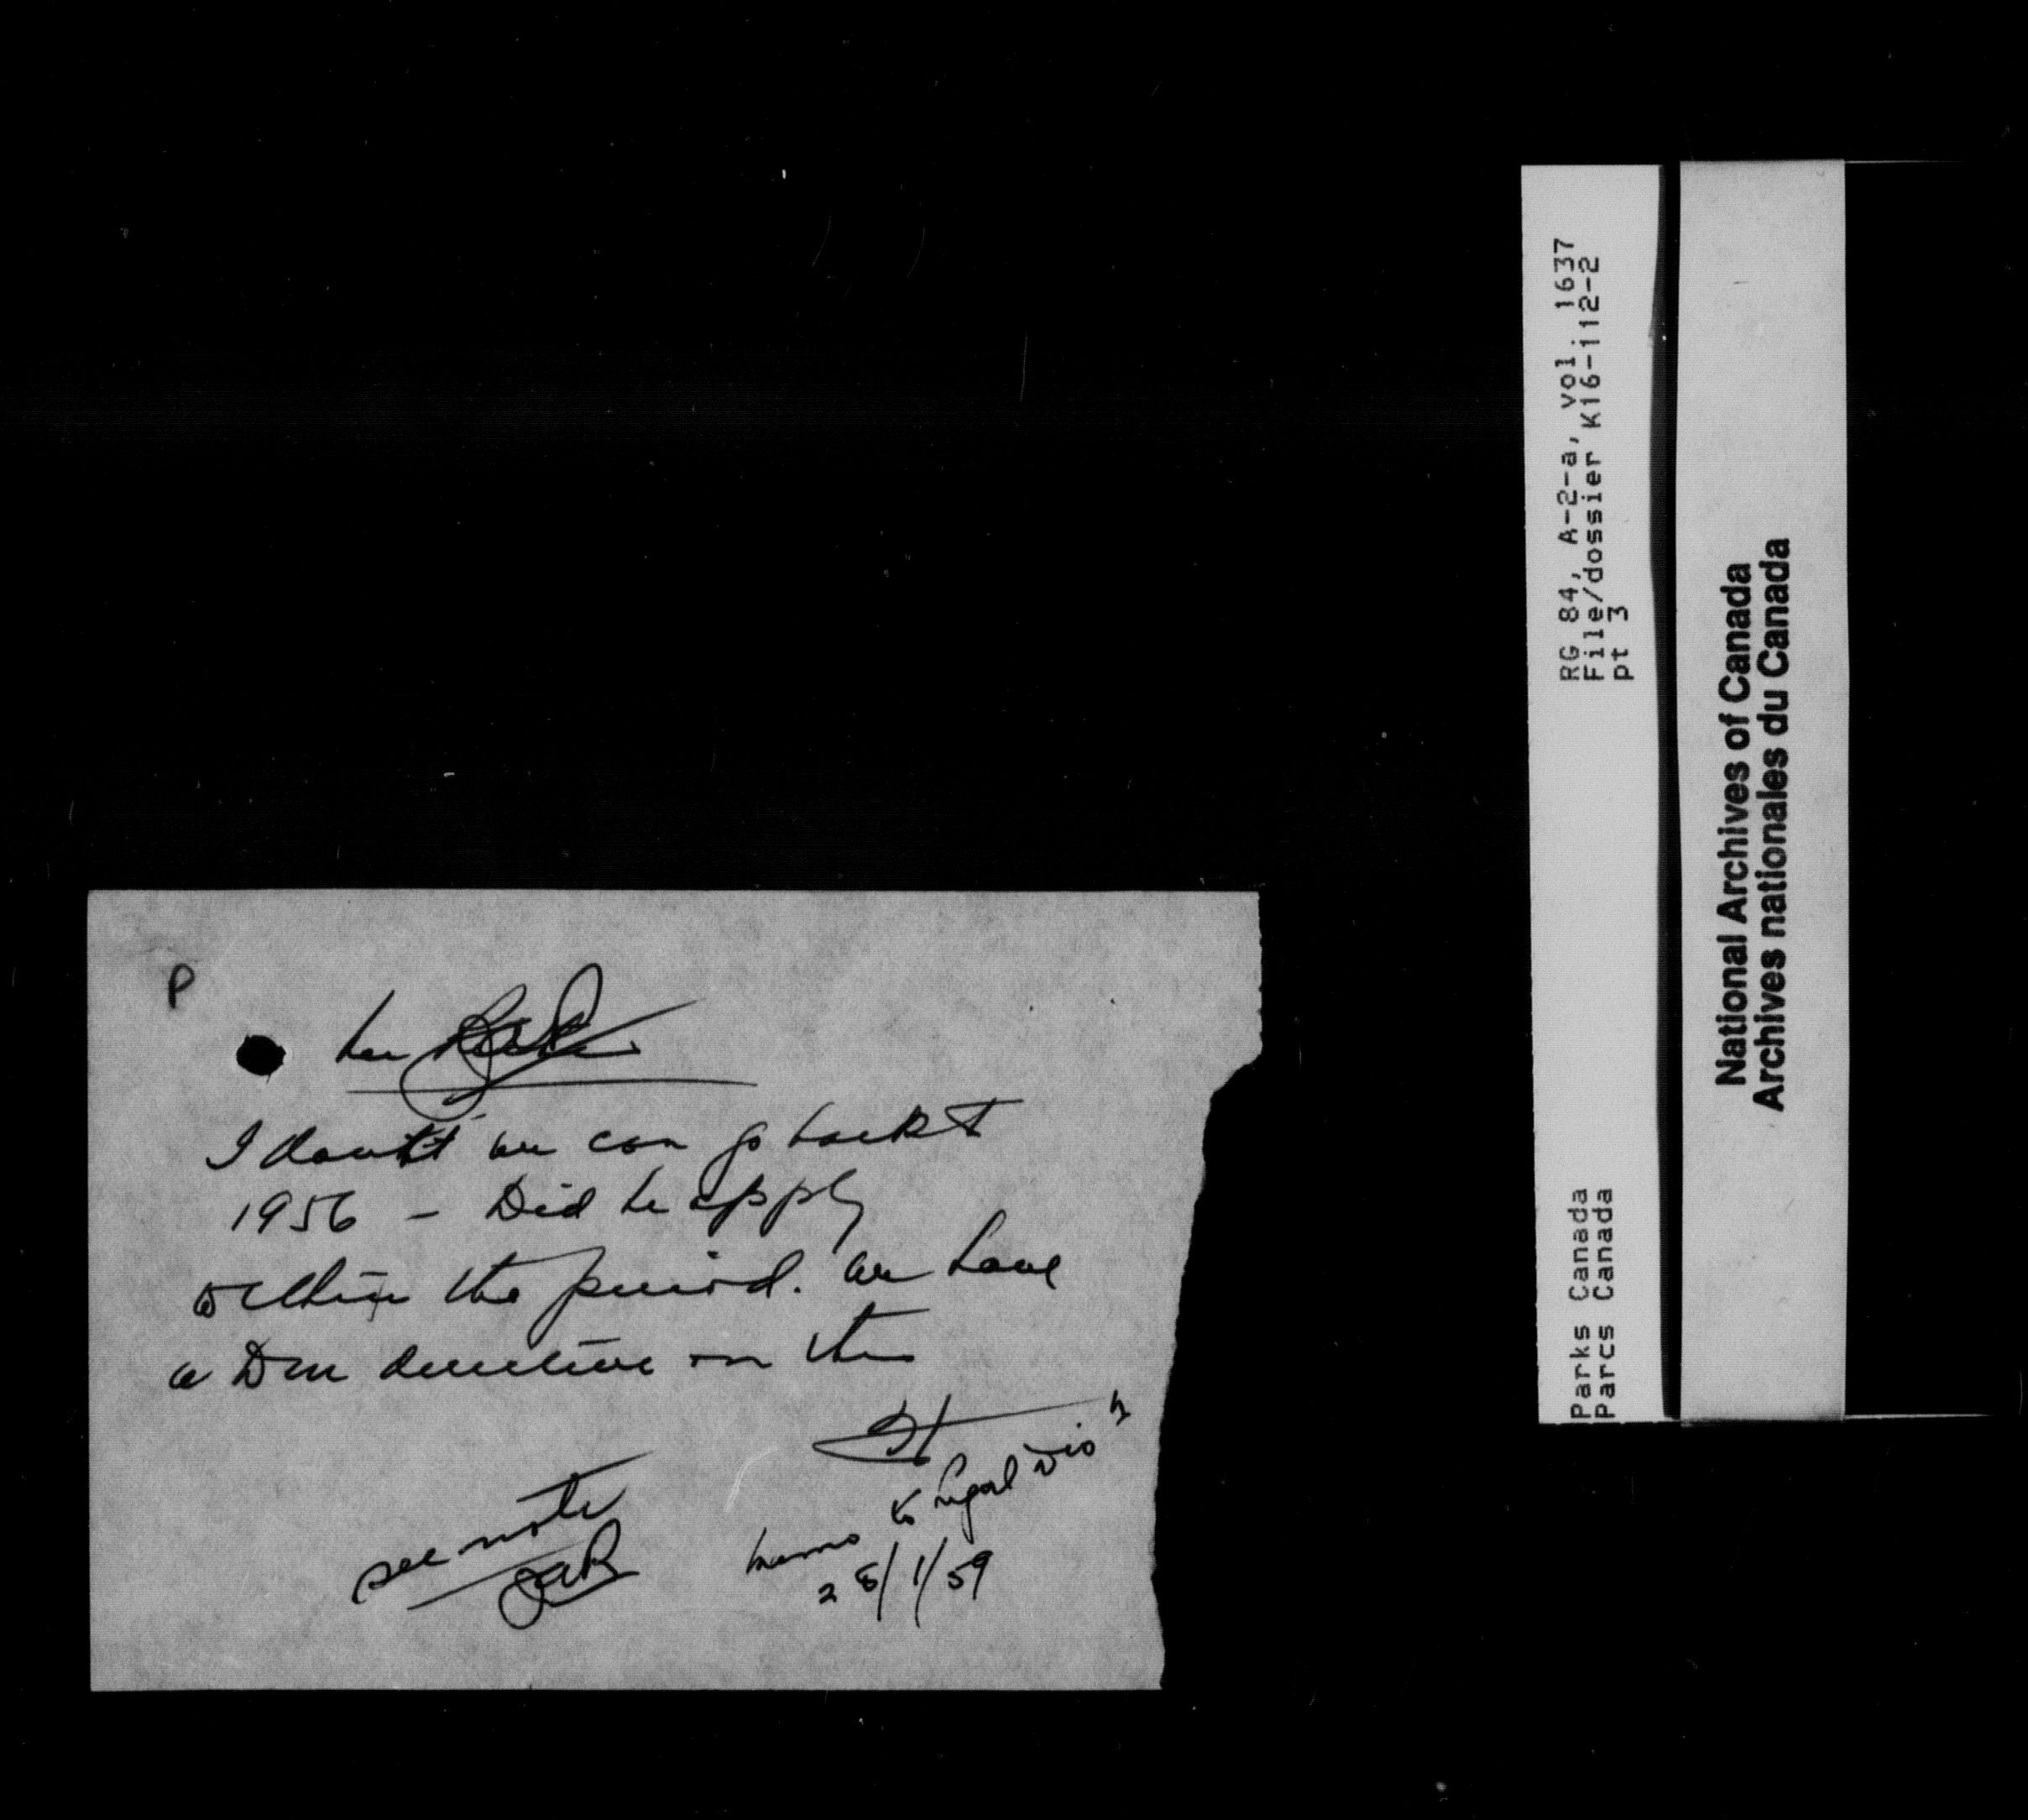 P
I doubt we can go back to
1956 - Did he apply
within the period. We have
a DM directive on this
see note
JAP
memo to Legal Div'n
28/1/59
RG 84, A-2-a, vol. 1637
File/dossier K16-112-2
pt 3
Parks Canada
Parcs Canada
National Archives of Canada
Archives nationales du Canada